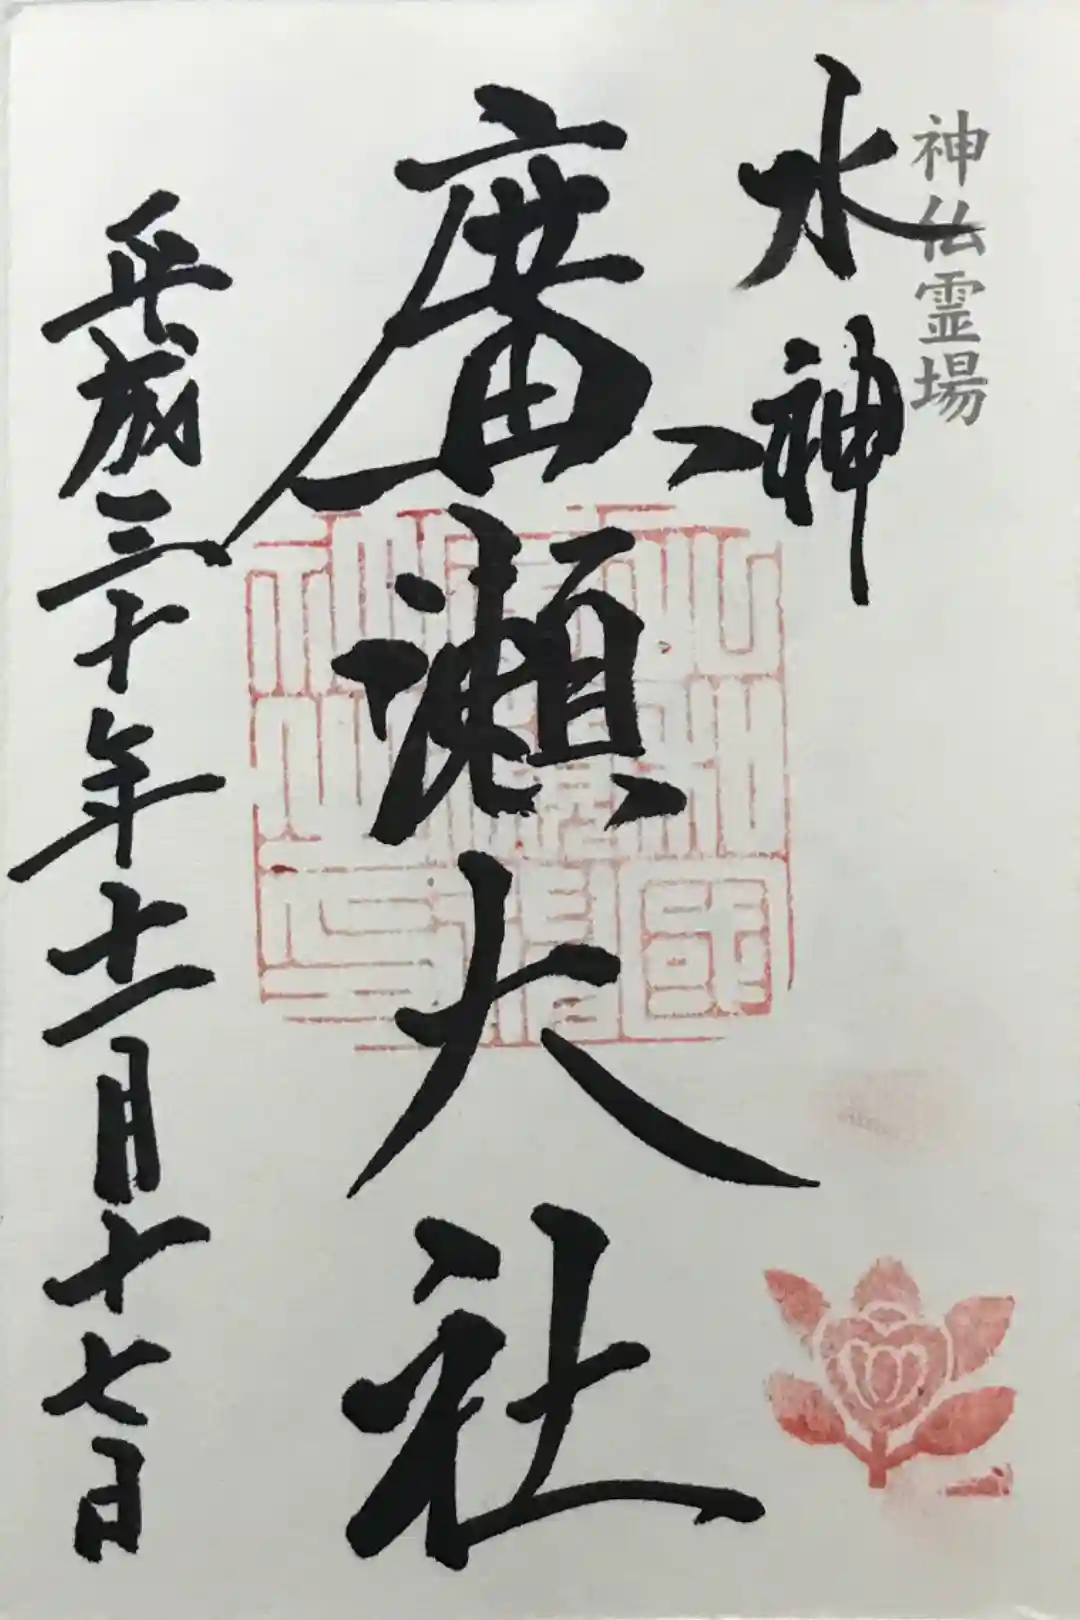 神仏霊場
水神
廣瀬大社
平成三十年十一月十七日